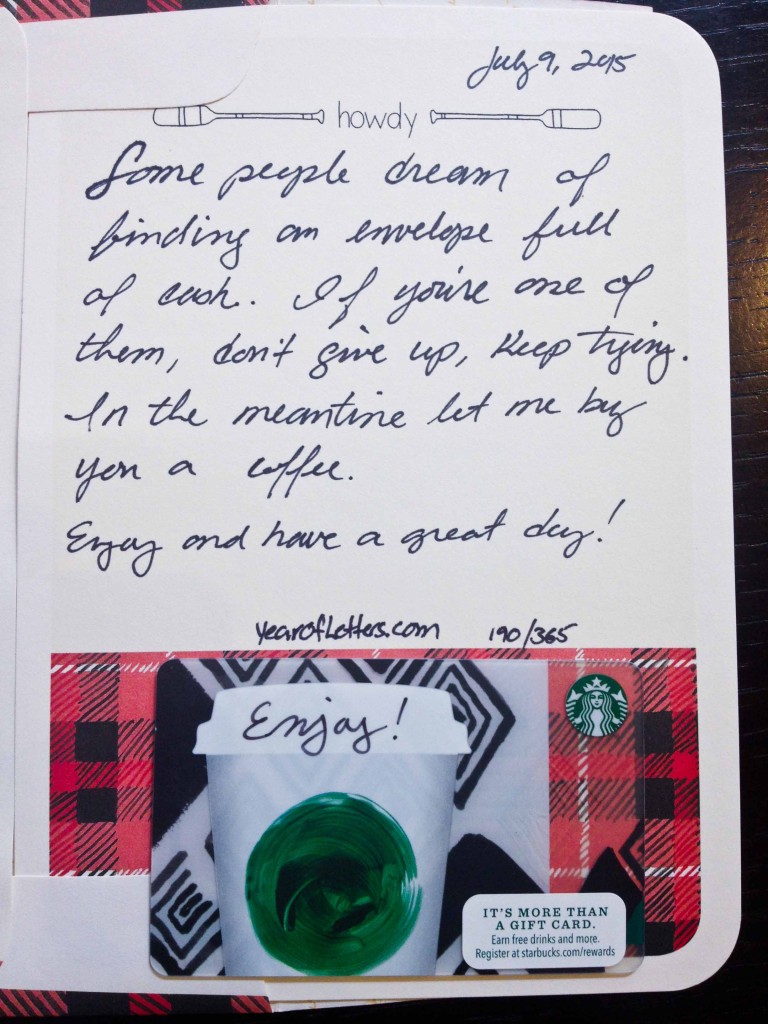 July 9, 2015
howdy
Some people dream of
finding an envelope full
of cash. If you're one of
them, don't give up, keep trying.
In the meantime let me buy
you a coffee.
Enjoy and have a great day!
yearofletters.com 190/365
Enjoy!
IT'S MORE THAN
A GIFT CARD.
Earn free drinks and more.
Register at starbucks.com/rewards